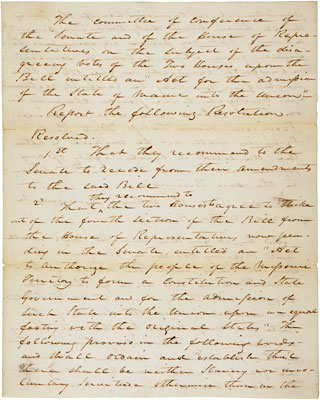 The committee of conference of
the Senate and of the House of Repre-
sentatives on the subject of the disa-
greeing votes of the Two Houses, upon the
Bill entitled an "Act for the admission
of the State of Maine into the Union"
Report the following Resolution.
Resolved.
1st That they recommend to the
Senate to recede from their amendments
to the said Bill
they recommend to
2d That the two Houses agree to strike
out of the fourth section of the Bill from
the House of Representatives now pen-
ding in the Senate, entitled an "Act
to authorize the people of the Missouri
Territory to form a Constitution and State
Government and for the admission of
such State into the Union upon an equal
footing with the original States" the
following proviso in the following words-
and shall ordain and establish that
there shall be neither Slavery nor invo-
luntary Servitude otherwise than in the